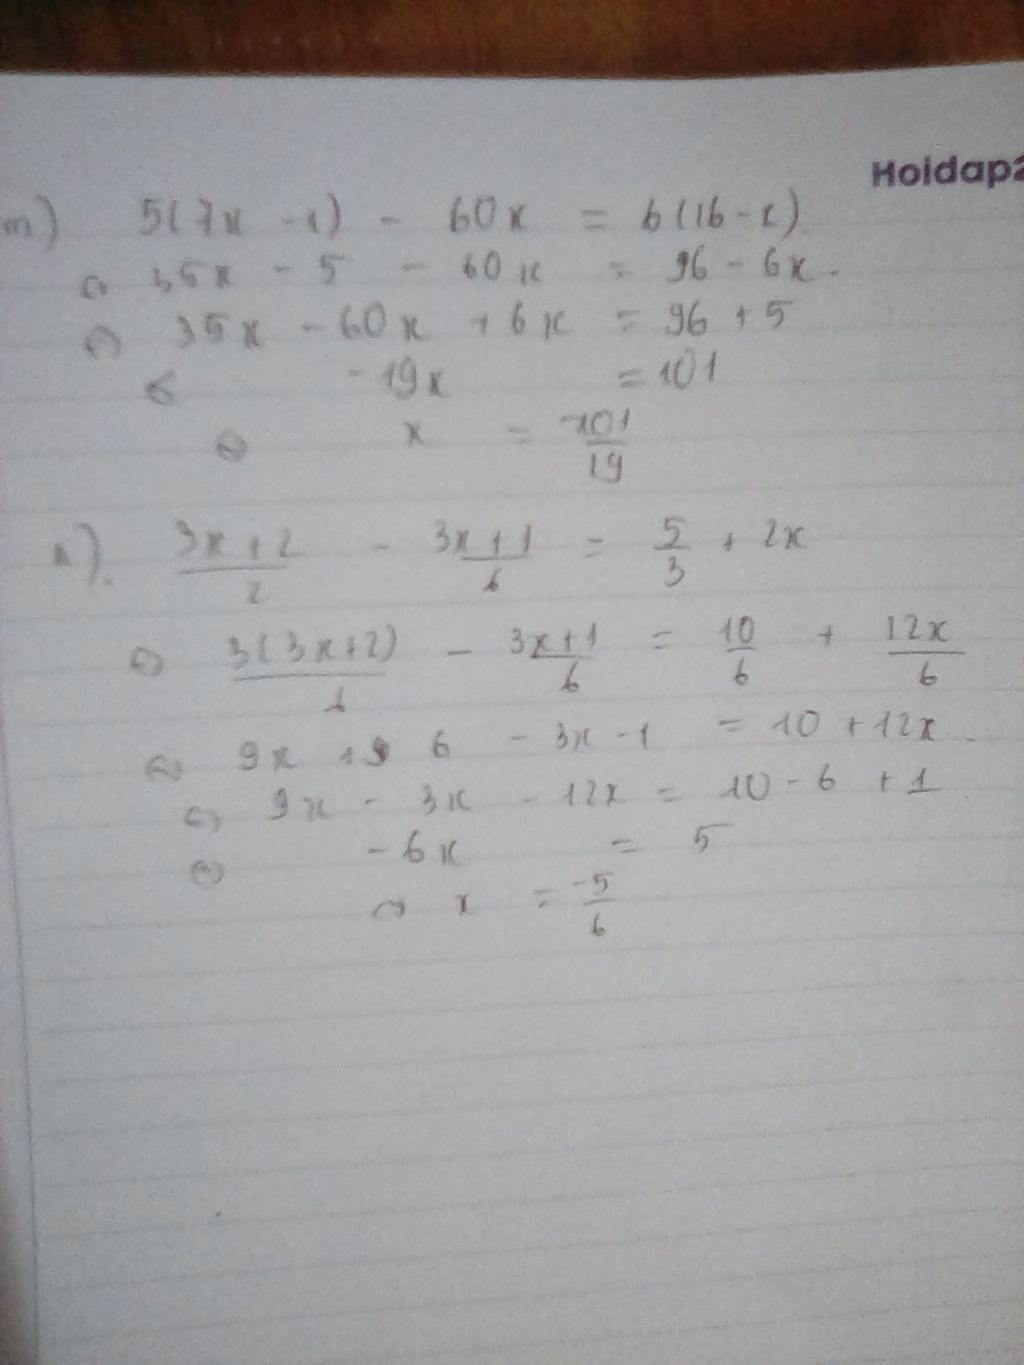 Hoidap2
m) 5(7x - 1) - 60x = 6(16 - x)
⇔ 35x - 5 - 60x = 96 - 6x.
⇔ 35x - 60x + 6x = 96 + 5
⇔ - 19x = 101
⇔ x = -101/19
n). (3x + 2)/2 - (3x + 1)/6 = 5/3 + 2x
⇔ 3(3x+2)/6 - (3x+1)/6 = 10/6 + 12x/6
⇔ 9x + 6 - 3x - 1 = 10 + 12x.
⇔ 9x - 3x - 12x = 10 - 6 + 1
⇔ - 6x = 5
⇔ x = -5/6